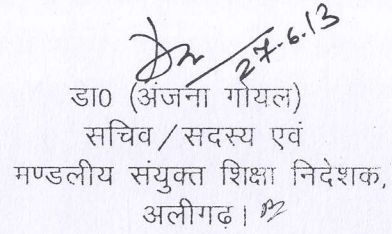 27.6.13
डा0 (अंजना गोयल)
सचिव/सदस्य एवं
मण्डलीय संयुक्त शिक्षा निदेशक,
अलीगढ़।